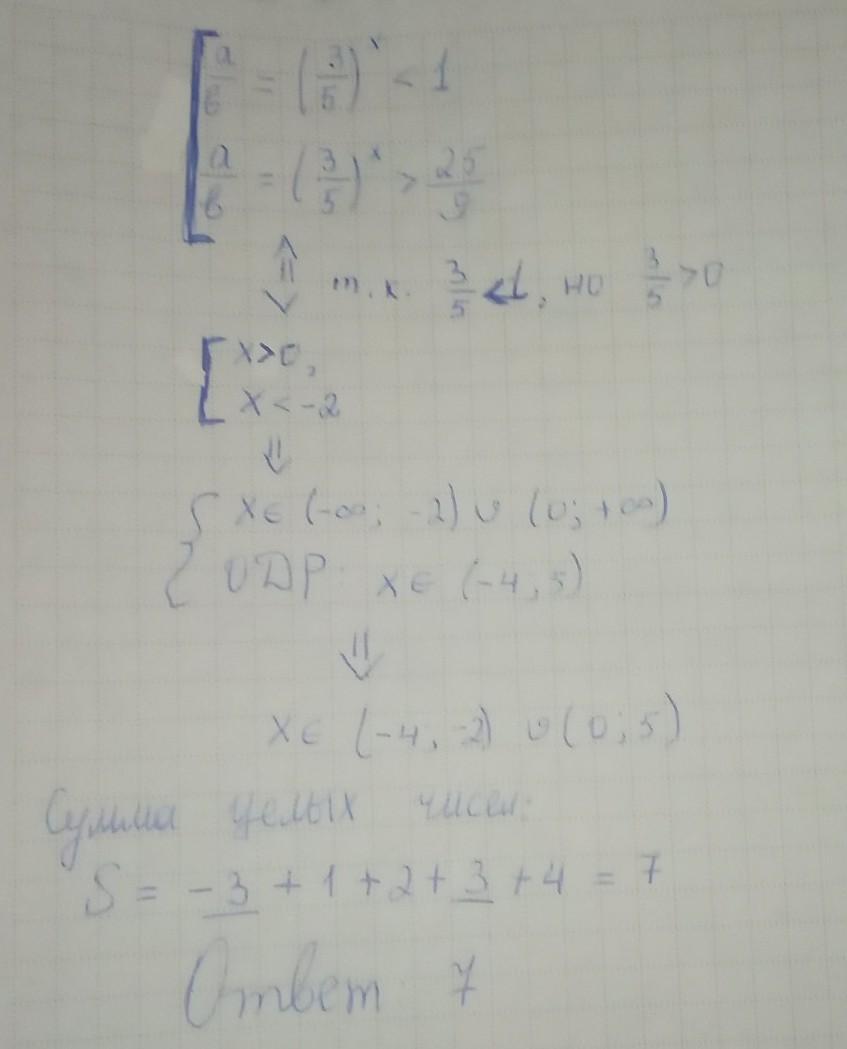 a/в = (3/5)^x < 1
a/в = (3/5)^x > 25/9
⇕ т.к. 3/5 < 1, но 3/5 > 0
x>0,
x < -2
⇓
x ∈ (-∞; -2) ∪ (0; +∞)
ОДР: x ∈ (-4, 5)
⇓
x ∈ (-4, -2) ∪ (0; 5)
Сумма целых чисел:
S = -3 + 1 + 2 + 3 + 4 = 7
Ответ 7